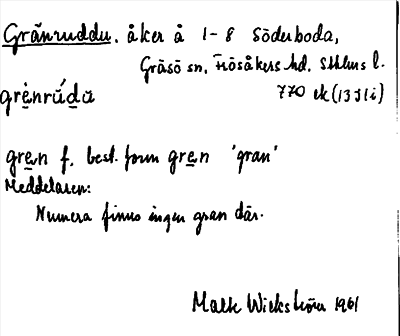 Gränruddu, åker å 1-8 Söderboda,
Gräsö sn, Frösåkers hd, Sthlms l.
grènrúdŭ 770 ek (13 I 1 i)
gren f, best. form gren 'gran'
Meddelaren:
Numera finns ingen gran där.
Matts Wickström 1961